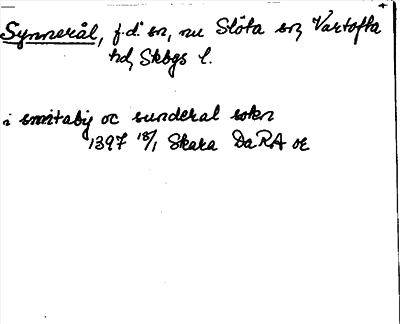 Synnerål, f.d. sn, nu Slöta sn, Vartofta
hd, Skbgs l.
i smitaby oc sunderal sokn
1397 18/1 Skara DaRA or